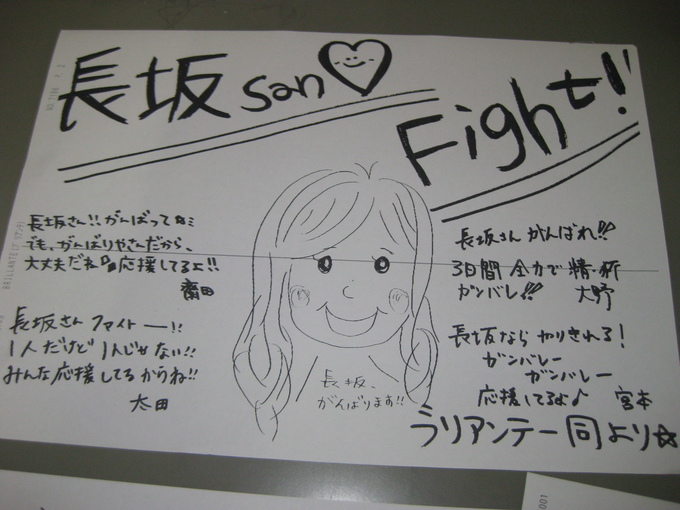 長坂 san
Fight!!
長坂さん!!がんばって☆ミ
でも、がんばりやさんだから、
大丈夫だね 応援してるよ!!
齋田
長坂さん ファイトー!!
1人だけど1人じゃない!!
みんな応援してるからね!!
太田
長坂さん がんばれ!!
3日間 全力で精・析
ガンバレ!! 大野
長坂なら やりきれる!
ガンバレー
ガンバレー
応援してるよ♪ 宮本
長坂、
がんばります!!
ラリアンテ一同より☆